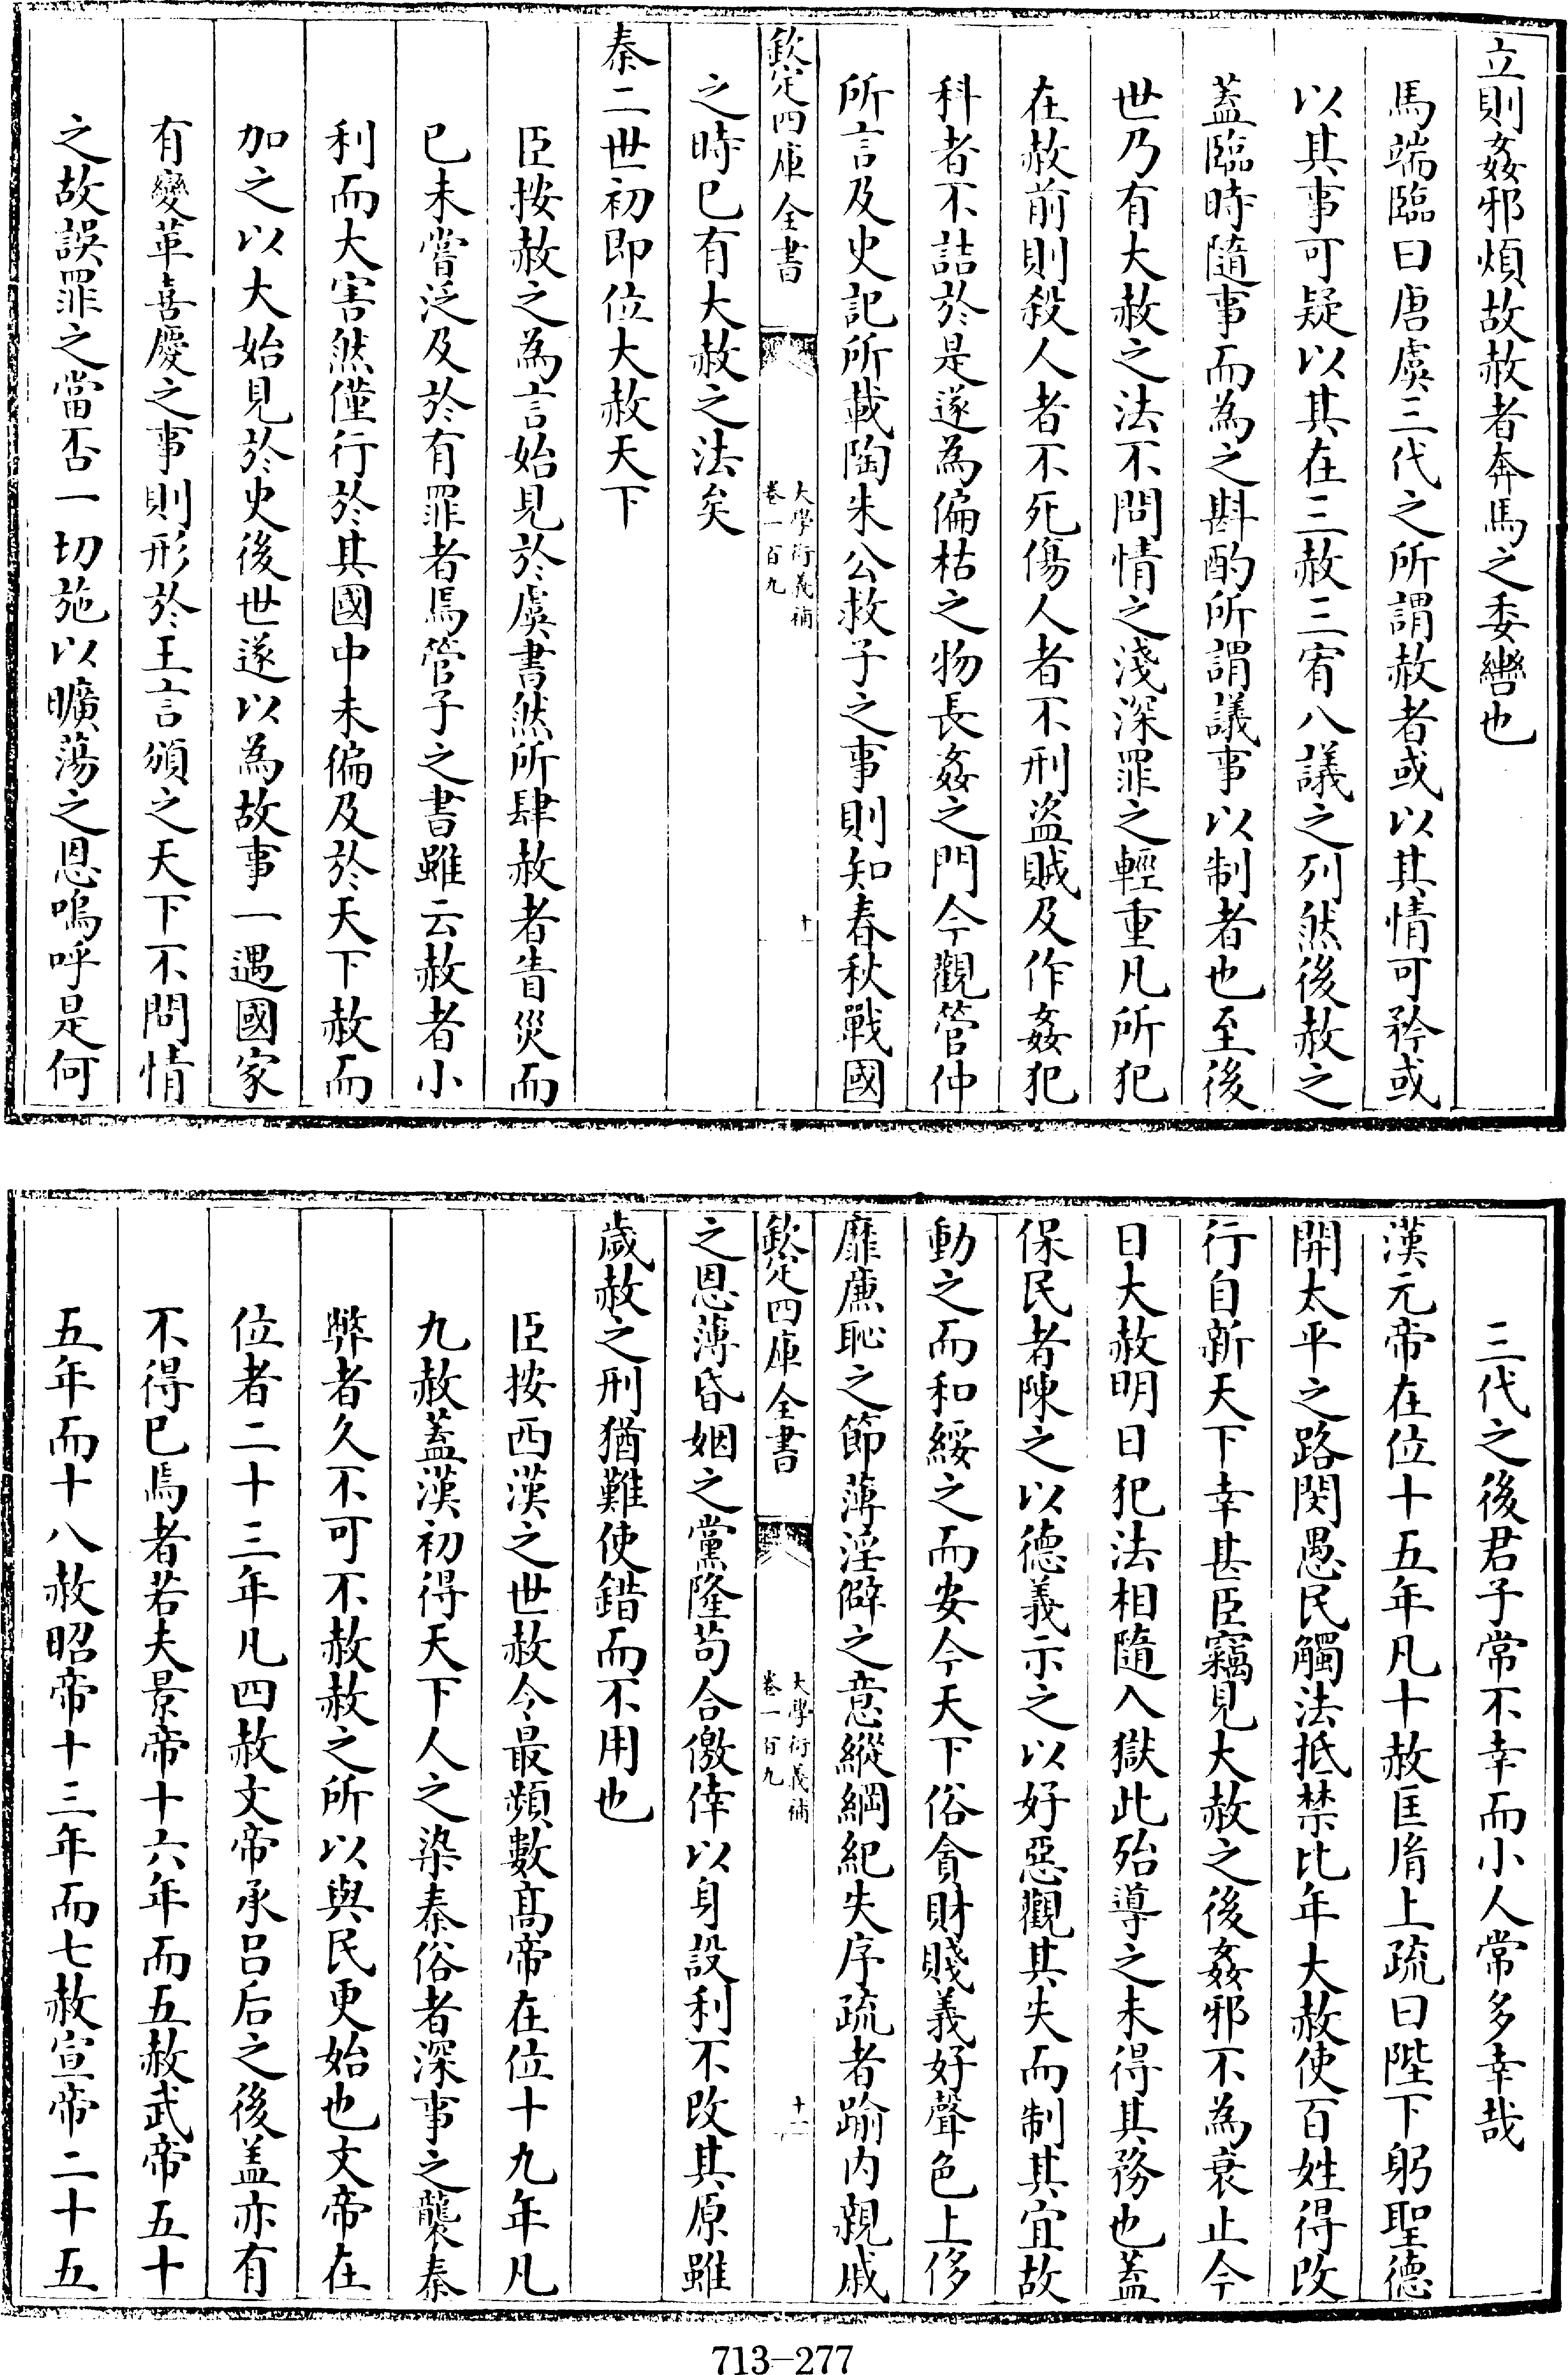 立則姦邪煩故赦者奔馬之委轡也
馬端臨曰唐虞三代之所謂赦者或以其情可矜或
以其事可疑以其在三赦三宥八議之列然後赦之
蓋臨時隨事而為之斟酌所謂議事以制者也至後
世乃有大赦之法不問情之淺深罪之輕重凡所犯
在赦前則殺人者不死傷人者不刑盜賊及作姦犯
科者不詰於是遂為偏枯之物長姦之門今觀管仲
所言及史記所載陶朱公救子之事則知春秋戰國
欽定四庫全書
大學衍義補
卷一百九
十
之時已有大赦之法矣
秦二世初即位大赦天下
臣按赦之為言始見於虞書然所肆赦者眚災而
已未嘗泛及於有罪者焉管子之書雖云赦者小
利而大害然僅行於其國中未徧及於天下赦而
加之以大始見於史後世遂以為故事一遇國家
有變革喜慶之事則形於王言頒之天下不問情
之故誤罪之當否一切施以曠蕩之恩嗚呼是何
三代之後君子常不幸而小人常多幸哉
漢元帝在位十五年凡十赦匡衡上疏曰陛下躬聖德
開太平之路閔愚民觸法抵禁比年大赦使百姓得改
行自新天下幸甚臣竊見大赦之後姦邪不為衰止今
日大赦明日犯法相隨入獄此殆導之未得其務也蓋
保民者陳之以德義示之以好惡觀其失而制其宜故
動之而和綏之而安今天下俗貪財賤義好聲色上侈
靡廉恥之節薄淫僻之意縱綱紀失序疏者踰內親戚
欽定四庫全書
大學衍義補
卷一百九
十一
之恩薄昏姻之黨隆苟合徼倖以身設利不改其原雖
歲赦之刑猶難使錯而不用也
臣按西漢之世赦令最頻數高帝在位十九年凡
九赦蓋漢初得天下人之染秦俗者深事之襲秦
弊者久不可不赦赦之所以與民更始也文帝在
位者二十三年凡四赦文帝承呂后之後盖亦有
不得已焉者若夫景帝十六年而五赦武帝五十
五年而十八赦昭帝十三年而七赦宣帝二十五
713-277